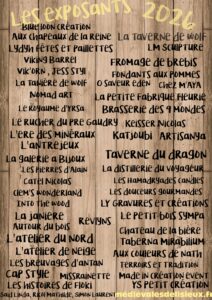 Les exposants 2024
Bluejoon création
Aux chapeaux de la reine
Lydyli fêtes et paillettes
Viking Barrel
Vik'orn, Jess'tyl
La tanière de wolf
Nomad art
Le royaume d'Yrsa
Le rucher du pré Gaudry
L'ère des minéraux
L'antrejeux
La galerie à bijoux
Les pierres d'Alain
Catel Nicolas
Clem's wonderland
Into the wood
La janière
Révlyns
Autour du bois
L'atelier du nord
L'atelier de neige
Les breuvages d'antan
Cap style
Missrainette
Les histoires de Floki
Said Linda, Rich Mathilde, Simon Laurent
La taverne de wolf
LM sculpture
Fromage de brebis
Fondants aux pommes
O saveur éden
Chez M'aya
La petite fabrique fleurie
Brasserie des 9 mondes
Keisser Nicolas
Katjoubi
Artisanya
Taverne du dragon
La distillerie du voyageur
Les hamadryades candles
Les douceurs gourmandes
LY gravures et créations
Le petit bois sympa
Chateau de la bière
Taberna Mirabilium
Aux couleurs de Nath
Terroirs et tradition
Made in création event
YS petit création
medievalesdelisieux.f